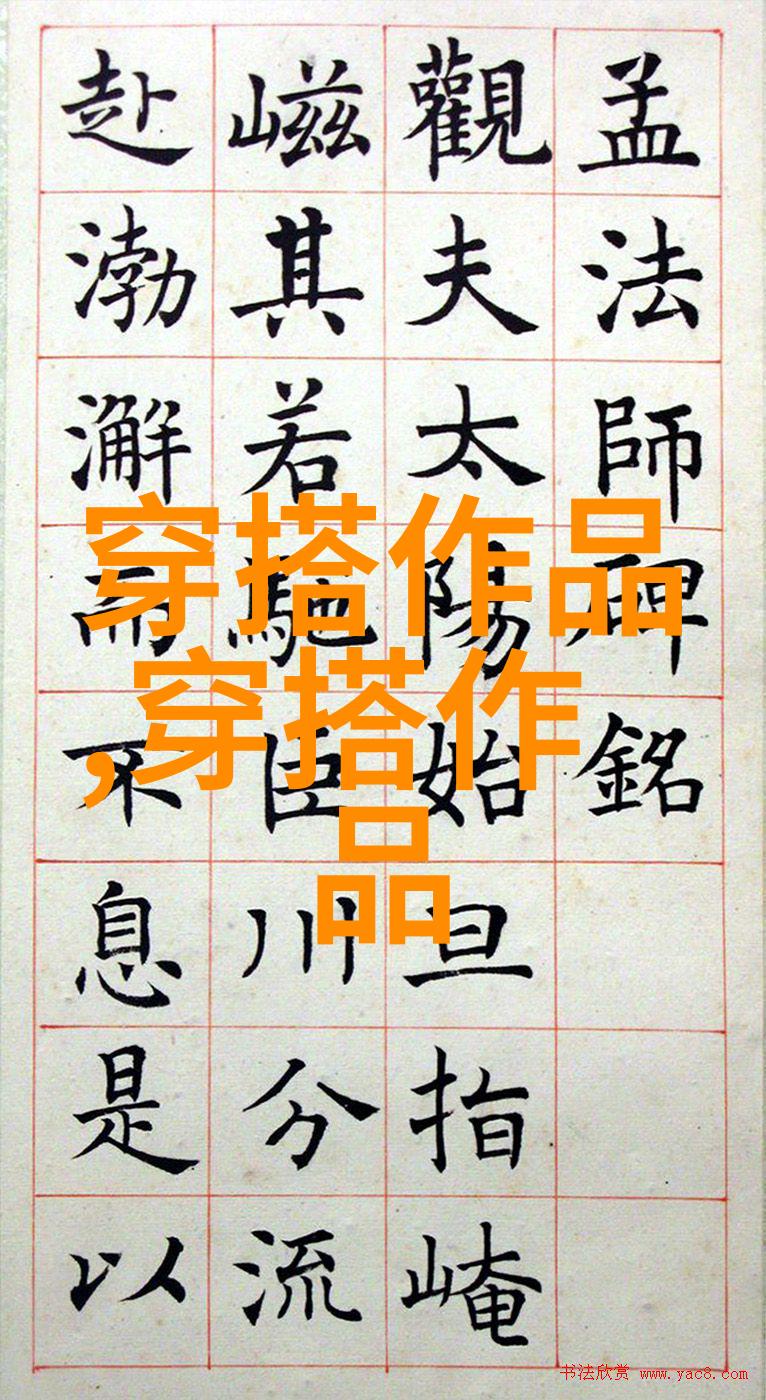 孟法師碑銘
觀夫太陽始旦指崦
嵫其若馳臣川分流
赴渤澥而不息是以
穿搭作品
,穿搭作
品
书法欣赏 www.yac8.com